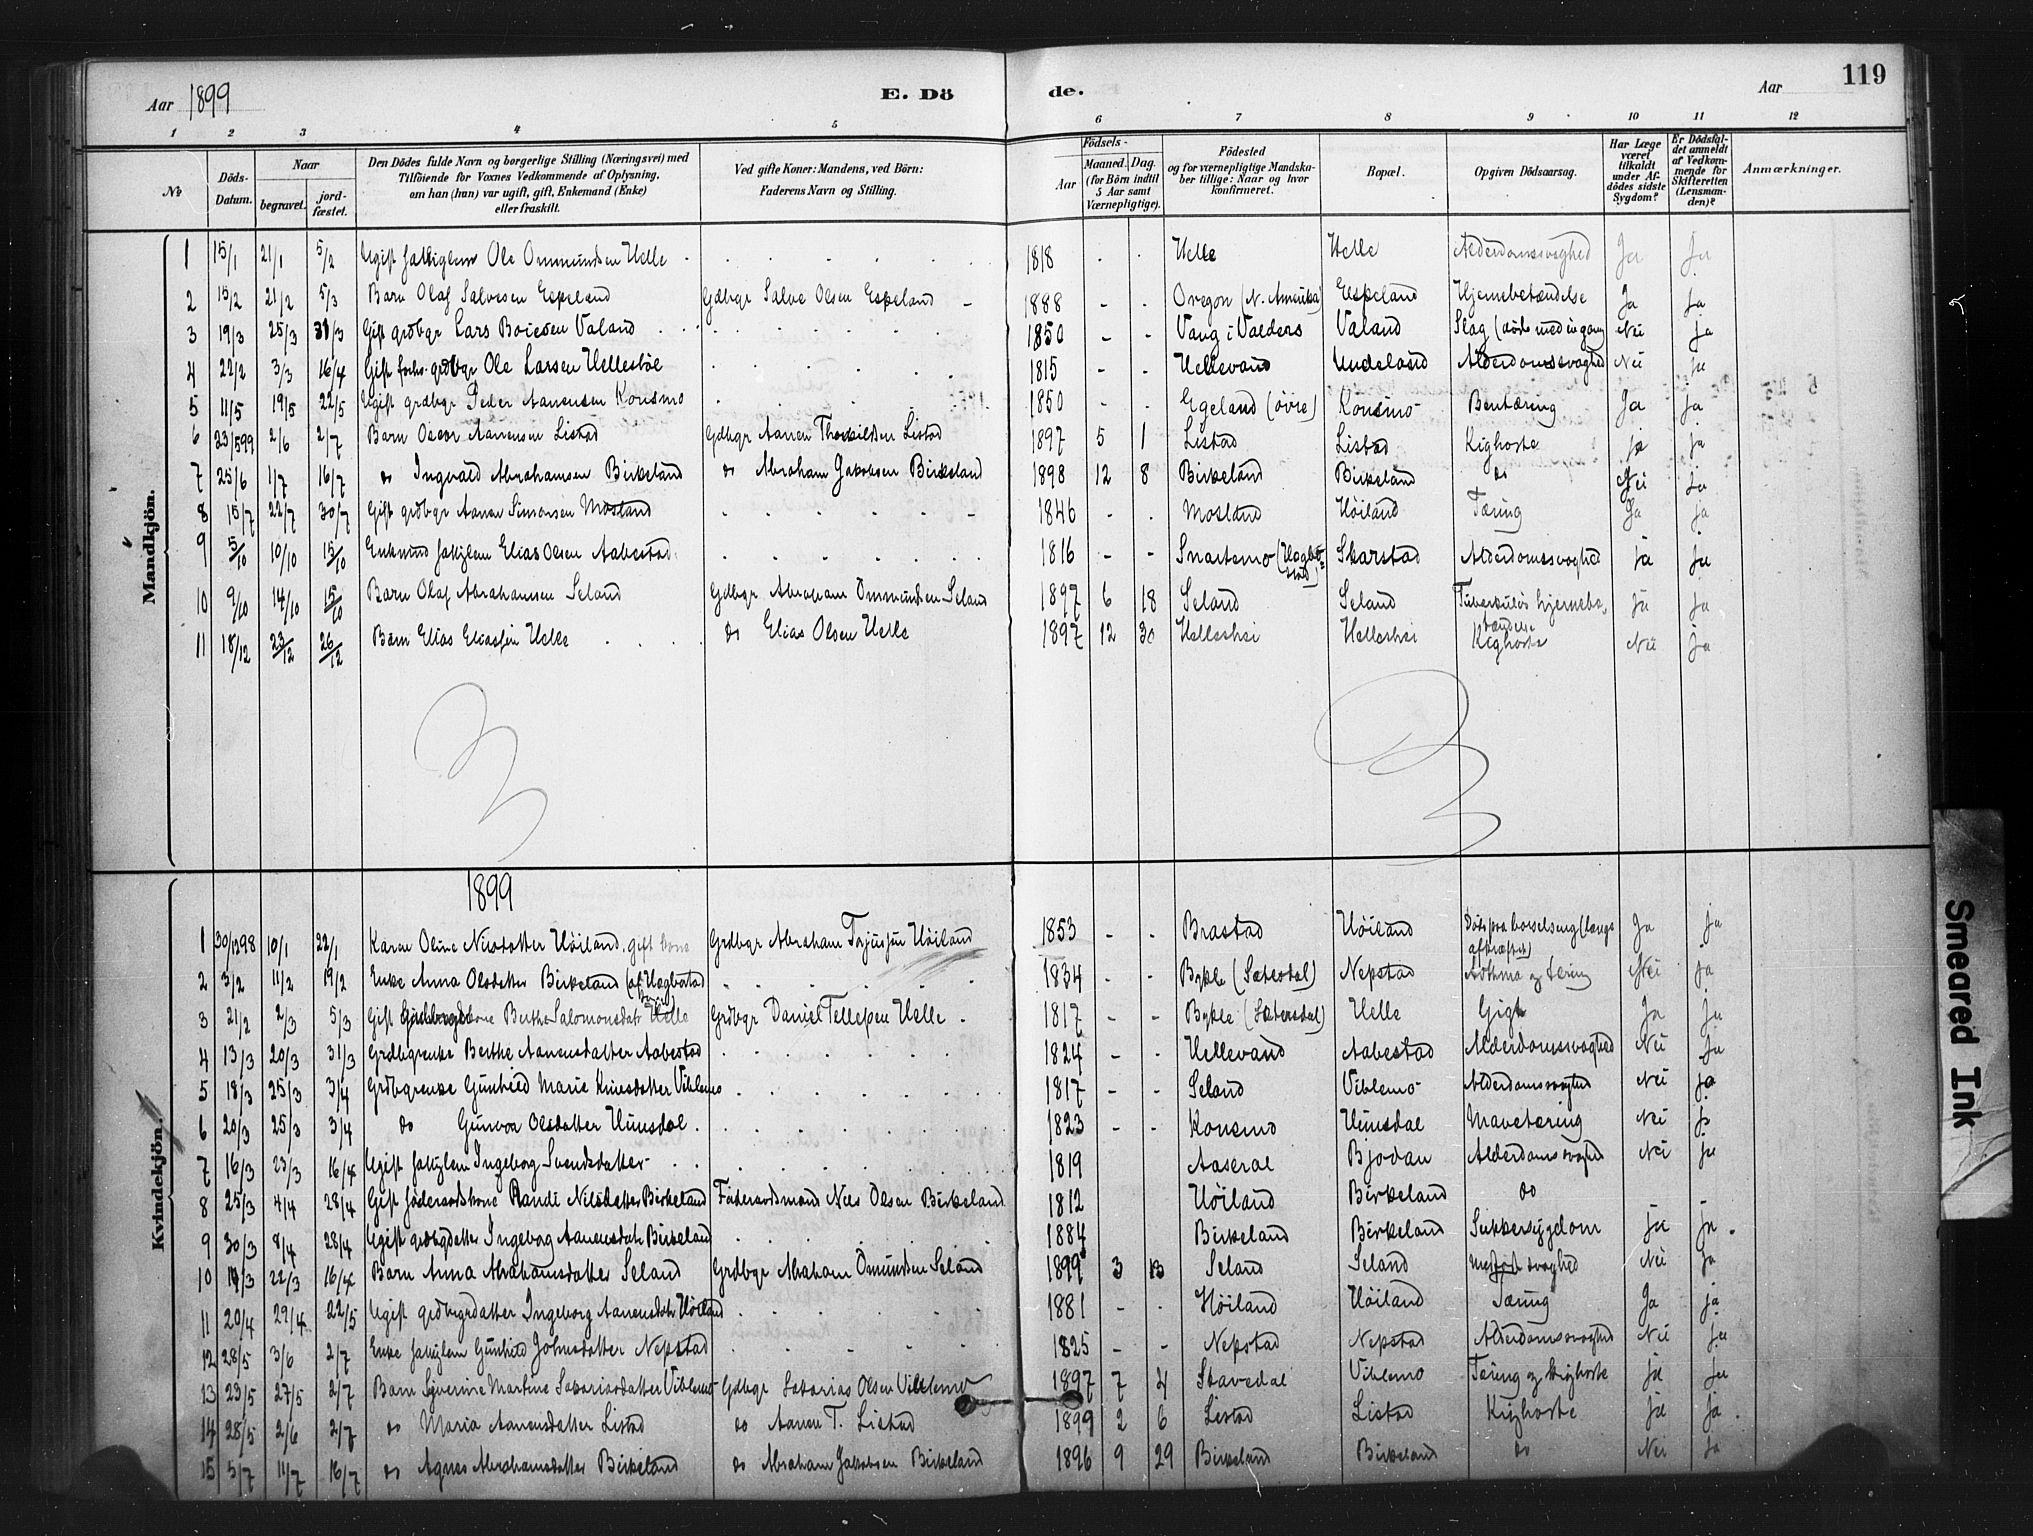 Aar 1899 E. Dö de. Aar 119
1 2 3 4 5 6 7 8 9 10 11 12
No Döds-Datum. Naar begravet. jord-fæstet. Den Dödes fulde Navn og borgerlige Stilling (Næringsvei) med Tilföiende for Voxnes Vedkommende af Oplysning, om han (hun) var ugift, gift, Enkemand (Enke) eller fraskilt. Ved gifte Koner: Mandens, ved Börn: Faderens Navn og Stilling. Födsels- Aar Maaned. Dag. (for Börn indtil 5 Aar samt Værnepligtige). Födested og for værnepligtige Mandskaber tillige: Naar og hvor konfirmeret. Bopæl. Opgiven Dödsaarsag. Har Læge været tilkaldt under Afdödes sidste Sygdom? Er Dödsfaldet anmeldt af Vedkommende for Skifteretten (Lensmanden)? Anmærkninger.
Mandkjön.
1 15/1 21/1 5/2 Ugift fattiglem Ole Ommundsen Helle 1818 - - Helle Helle Alderdomssvaghed Ja Ja
2 15/2 21/2 5/3 Barn Olaf Salvesen Espeland Gdbgr Salve Olsen Espeland 1888 - - Oregon (N. Amerika) Espeland Hjernebetændelse Ja Ja
3 19/3 25/3 31/3 Gift grdbgr Lars Boiesen Valand 1850 - - Vang i Valders Valand Slag (døde med en gang Nei Ja
4 22/2 3/3 16/4 Gift forh. grdbgr Ole Larsen Hellesböe 1815 - - Hellevand Undeland Alderdomssvaghed Nei Ja
5 11/5 19/5 22/5 Ugift grdbgr Peder Aanensen Konsmo 1850 - - Egeland (övre) Konsmo Bentæring Ja Ja
6 23/5 99 2/6 2/7 Barn Oscar Aanensen Listad Gdbgr Aanen Thorkildsen Listad 1897 5 1 Listad Listad Kighoste ja ja
7 25/6 1/7 16/7 do Ingvald Abrahamsen Birkeland do Abraham Jakobsen Birkeland 1898 12 8 Birkeland Birkeland do Nei ja
8 15/7 22/7 30/7 Gift grdbgr Aanen Simonsen Mosland 1846 - - Mosland Höiland Tæring Ja ja
9 5/10 10/10 15/10 Enkmnd fattiglem Elias Olsen Aabestad 1816 - - Snartemo (Hægbostad) Skarstad Alderdomssvaghed ja ja
10 9/10 14/10 15/10 Barn Olaf Abrahamsen Seland Gdbgr Abraham Ommundsen Seland 1897 6 18 Seland Seland Tuberkulös hjernebetændelse ja ja
11 18/12 23/12 26/12 Barn Elias Eliassen Helle do Elias Olsen Helle 1897 12 30 Helleshei Helleshei Kighoste Nei ja
Kvindekjön.
1899
1 30/12 98 10/1 22/1 Karen Oline Nilsdatter Höiland, gift kone Grdbgr Abraham Terjussen Höiland 1853 - - Brastad Höiland Døde paa barselseng Ja Ja
2 3/2 11/2 19/2 Enke Anna Olsdatter Birkeland (af Hægbostad 1834 - - Bykle (Sætersdal) Nepstad Asthma og tæring Nei ja
3 21/2 2/3 5/3 Gift kone Berthe Salomonsdatr Helle Grdbgr Daniel Tellefsen Helle 1817 - - Bykle (Sætersdal) Helle Gigt Ja Ja
4 13/3 20/3 31/3 Grdbgrenke Berthe Aanensdatter Aabestad 1824 - - Hellevand Aabestad Alderdomssvaghed Nei Ja
5 18/3 25/3 3/4 Grdbgrenke Gunhild Marie Knudsdatter Viblemo 1817 - - Seland Viblemo Alderdomssvaghed Nei ja
6 20/3 25/3 3/4 do Gunvor Olsdatter Hunsdal 1823 - - Konsmo Hunsdal Mavetæring Nei ja
7 16/3 23/3 16/4 Ugift fattiglem Ingeborg Svendsdatter 1819 Aaseral Bjodan Alderdomssvaghed Nei ja
8 25/3 4/4 28/4 Gift föderaadskone Randi Nilsdatter Birkeland Föderaadsmand Nils Olsen Birkeland 1812 Höiland Birkeland do - -
9 30/3 8/4 28/4 Ugift grdbgrdatter Ingeborg Aanensdatr Birkeland 1884 Birkeland Birkeland Sukkersygdom ja ja
10 19/3 22/3 16/4 Barn Anna Abrahamsdatter Seland Grdbgr Abraham Omundsen Seland 1899 3 13 Seland Seland Medfödt svaghed Nei ja
11 20/4 29/4 22/5 Ugift grdbgrdatter Ingeborg Aanensdatr Höiland 1881 - - Höiland Höiland Tæring Ja ja
12 28/5 3/6 2/7 Enke fattiglem Gunhild Johnsdatter Nepstad 1825 - - Nepstad Nepstad Alderdomssvaghed Nei ja
13 23/5 27/5 2/7 Barn Syverine Martine Sakariasdatter Viblemo Gdbgr Sakarias Olsen Viblemo 1897 7 4 Stavedal Viblemo Tæring og kighoste ja ja
14 28/5 2/6 2/7 do Maria Aanensdatter Listad do Aanen T. Listad 1899 2 6 Listad Listad Kighoste ja ja
15 5/7 11/7 16/7 do Agnes Abrahamsdatter Birkeland do Abraham Jakobsen Birkeland 1896 9 29 Birkeland Birkeland do Nei ja
Smeared Ink